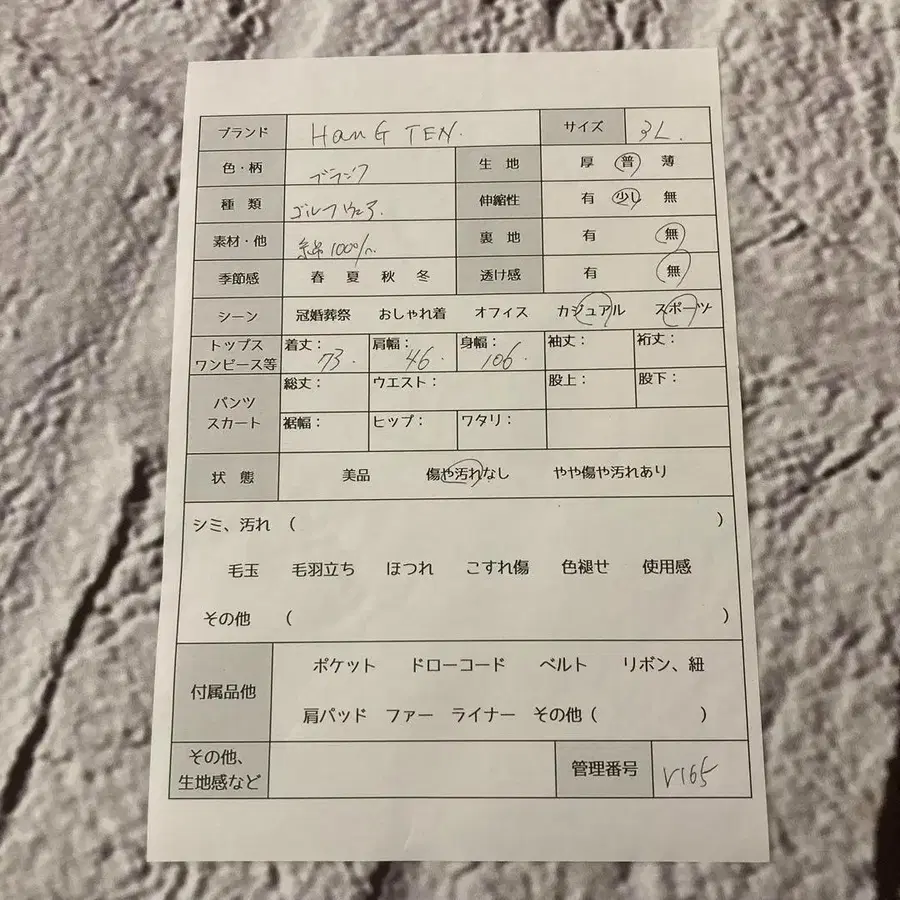 ブランド HanG TEN. サイズ 3L.
色・柄 ブラック 生 地 厚 普 薄
種 類 ゴルフウェア. 伸縮性 有 少し 無
素材・他 綿100%. 裏 地 有 無
季節感 春 夏 秋 冬 透け感 有 無
シーン 冠婚葬祭 おしゃれ着 オフィス カジュアル スポーツ
トップス
ワンピース等 着丈: 73. 肩幅: 46. 身幅: 106. 袖丈: 裄丈:
パンツ
スカート 総丈: ウエスト: 股上: 股下:
裾幅: ヒップ: ワタリ:
状 態 美品 傷や汚れなし やや傷や汚れあり
シミ、汚れ ( )
毛玉 毛羽立ち ほつれ こすれ傷 色褪せ 使用感
その他 ( )
付属品他 ポケット ドローコード ベルト リボン、紐
肩パッド ファー ライナー その他 ( )
その他、
生地感など 管理番号 V165